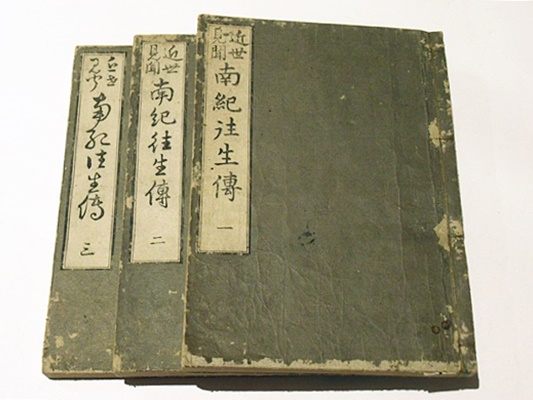 近世
見聞
南紀往生傳
一
近世
見聞
南紀往生傳
二
近世
見聞
南紀往生傳
三